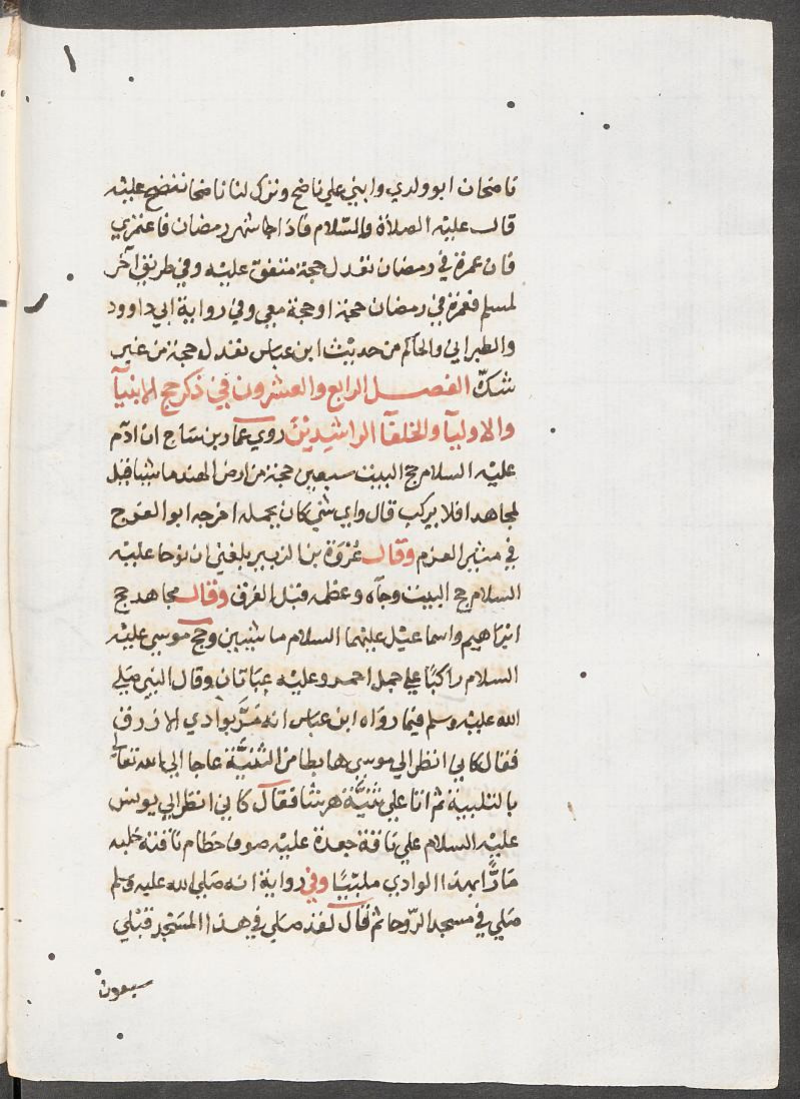 ١
ناضحان ابو ولدي وابني علي ناضح ونزك لنا ناضحا ننضح عليه
قال عليه الصلاة والسلام فاذا جا شهر رمضان فاعتمري
فان عمرة في رمضان تعدل حجة متفق عليه وفي طريق آخر
لمسلم فعمرة في رمضان حجة او حجة معي وفي رواية ابي داوود
والطبراني والحاكم من حديث ابن عباس تعدل حجة من غير
شكّ الفصل الرابع والعشرون في ذكر حج الانبيآ
والاوليآ والخلفآ الراشدين روي عماد بن ساج ان ادم
عليه السلام حج البيت سبعين حجة من ارض الهند ماشيا قيل
لمجاهد افلا يركب قال واي شي كان يحمله اخرجه ابو الفرج
في مثير العزم وقال عُروة بن الزبير بلغني ان نوحا عليه
السلام حج البيت وجآه وعظمه قبل الغرق وقال مجاهد حج
ابراهيم واسماعيل عليهما السلام ماشيين وحج موسي عليه
السلام راكبًا علي جمل احمر وعليه عباتان وقال النبي صلي
الله عليه وسلم فيما رواه ابن عباس انه مَرَّ بوادي الازرق
فقال كاني انظر الي موسي هابطا من الثنيَّة عاجا الي الله تعالي
بالتلبية ثم اتا علي ثنيَّة هرشا فقال كاني انظر الي يونس
عليه السلام علي ناقة جعدة عليه صوف احطام ناقته خلبه
مارًّا بهذا الوادي ملبّيًا وفي رواية انه صلي الله عليه وسلم
صلي في مسجد الرّوحا ثم قال لقد صلي في هذا المسجد قبلي
سبعون